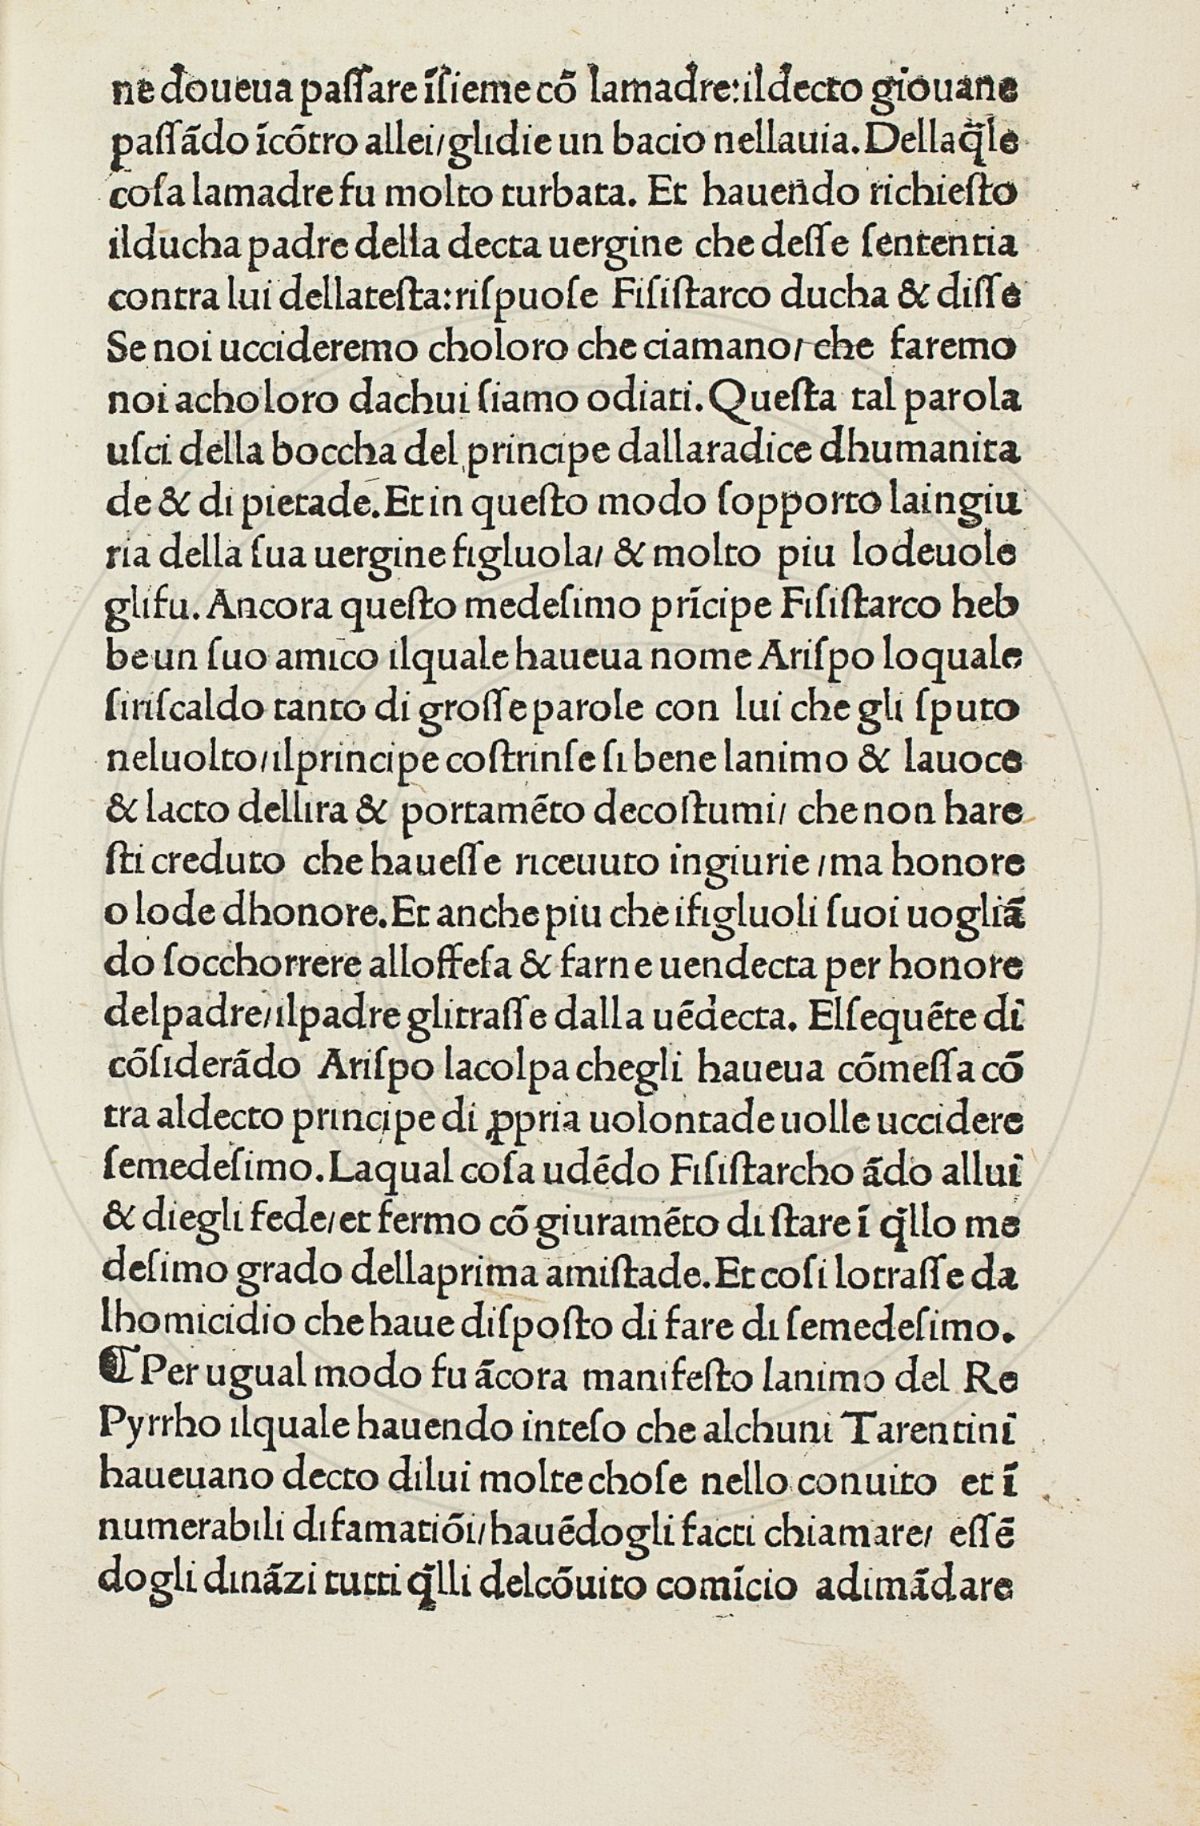 ne doueua paſſare ĩſieme cõ lamadre:ildecto giouane
paſſãdo ĩcõtro allei/glidie un bacio nellauia. Dellaq̃le
coſa lamadre fu molto turbata. Et hauendo richieſto
ilducha padre della decta uergine che deſſe ſententia
contra lui dellateſta:riſpuoſe Fiſiſtarco ducha & diſſe
Se noi uccideremo choloro che ciamano/che faremo
noi acholoro dachui ſiamo odiati. Queſta tal parola
uſci della boccha del principe dallaradice dhumanita
de & di pietade. Et in queſto modo ſopporto laingiu
ria della ſua uergine figluola/ & molto piu lodeuole
glifu. Ancora queſto medeſimo prĩcipe Fiſiſtarco heb
be un ſuo amico ilquale haueua nome Ariſpo loquale
ſiriſcaldo tanto di groſſe parole con lui che gli ſputo
neluolto/ilprincipe coſtrinſe ſi bene lanimo & lauoce
& lacto dellira & portamẽto decoſtumi/ che non hare
ſti creduto che haueſſe riceuuto ingiurie /ma honore
o lode dhonore. Et anche piu che ifigluoli ſuoi uogliã
do ſocchorrere alloffeſa & farne uendecta per honore
delpadre/ilpadre glitraſſe dalla uẽdecta. Elſequẽte di
cõſiderãdo Ariſpo lacolpa chegli haueua cõmeſſa cõ
tra aldecto principe di ꝓpria uolontade uolle uccidere
ſemedeſimo. Laqual coſa udẽdo Fiſiſtarcho ãdo allui
& diegli fede/et fermo cõ giuramẽto di ſtare ĩ q̃llo me
deſimo grado dellaprima amiſtade. Et coſi lotraſſe da
lhomicidio che haue diſpoſto di fare di ſemedeſimo.
¶ Per ugual modo fu ãcora manifeſto lanimo del Re
Pyrrho ilquale hauendo inteſo che alchuni Tarentini
haueuano decto dilui molte choſe nello conuito et ĩ
numerabili difamatiõi/hauẽdogli facti chiamare/ eſſẽ
dogli dinãzi tutti q̃lli delcõuito comĩcio adimãdare